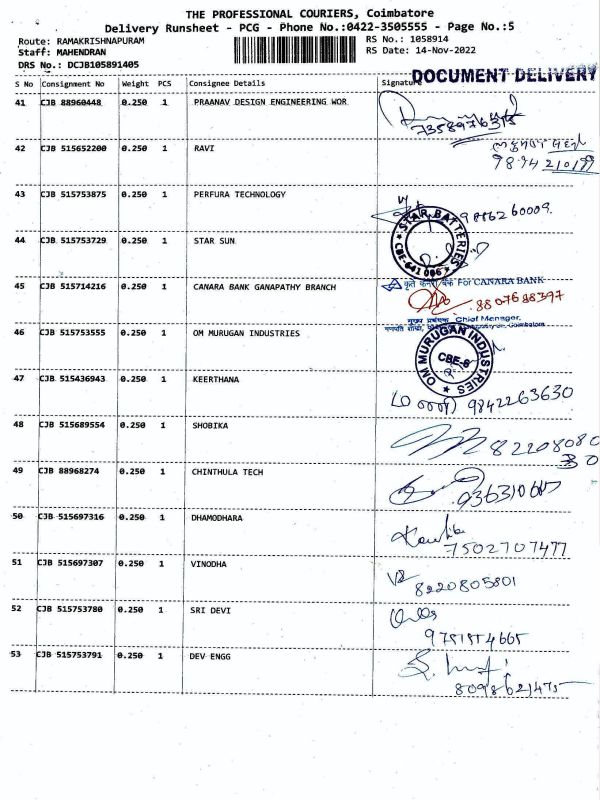 THE PROFESSIONAL COURIERS, Coimbatore
Delivery Runsheet - PCG - Phone No.:0422-3505555 - Page No.:5
Route: RAMAKRISHNAPURAM RS No.: 1058914
Staff: MAHENDRAN RS Date: 14-Nov-2022
DRS No.: DCJB105891405
DOCUMENT DELIVERY
S No Consignment No Weight PCS Consignee Details Signature
41 CJB 88960448 0.250 1 PRAANAV DESIGN ENGINEERING WOR
7358976315
42 CJB 515652200 0.250 1 RAVI
9894210199
43 CJB 515753875 0.250 1 PERFURA TECHNOLOGY
9886260009.
44 CJB 515753729 0.250 1 STAR SUN
STAR BATTERIES
CBE-641 006
45 CJB 515714216 0.250 1 CANARA BANK GANAPATHY BRANCH
कृते केनरा बैंक For CANARA BANK
8807688397
मुख्य प्रबंधक Chief Manager,
Coimbatore
46 CJB 515753555 0.250 1 OM MURUGAN INDUSTRIES
OM MURUGAN INDUSTRIES
CBE-6
47 CJB 515436943 0.250 1 KEERTHANA
9842263630
48 CJB 515689554 0.250 1 SHOBIKA
82208080
30
49 CJB 88968274 0.250 1 CHINTHULA TECH
50 CJB 515697316 0.250 1 DHAMODHARA
7502707477
51 CJB 515697307 0.250 1 VINODHA
8220805801
52 CJB 515753780 0.250 1 SRI DEVI
9751554665
53 CJB 515753791 0.250 1 DEV ENGG
8098621475